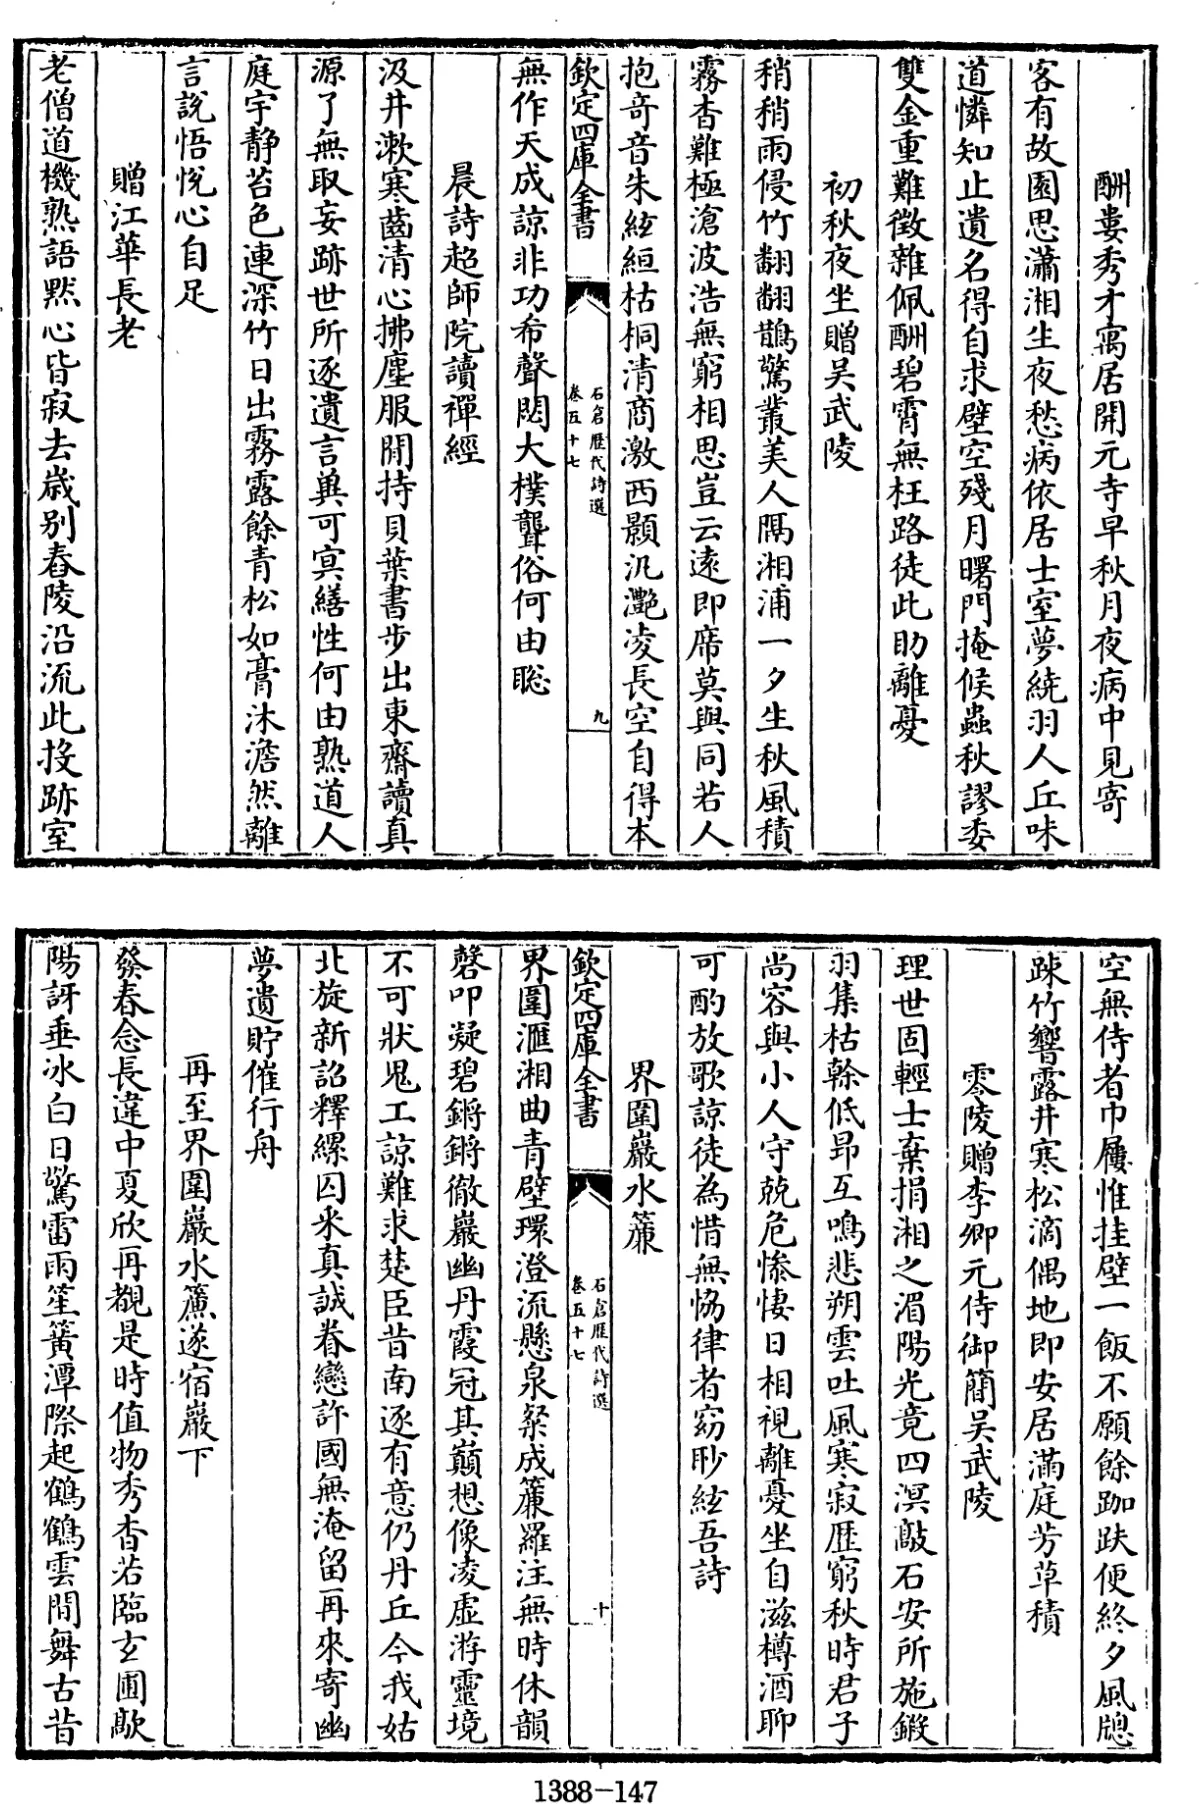 酬婁秀才寓居開元寺早秋月夜病中見寄
客有故園思瀟湘生夜愁病依居士室夢繞羽人丘味
道憐知止遺名得自求壁空殘月曙門掩候蟲秋謬委
雙金重難徵雜佩酬碧霄無枉路徒此助離憂
初秋夜坐贈吳武陵
稍稍雨侵竹翻翻鵲驚叢美人隔湘浦一夕生秋風積
霧杳難極滄波浩無窮相思豈云遠即席莫與同若人
抱奇音朱絃縆枯桐清商激西顥汎灧凌長空自得本
欽定四庫全書
石倉歷代詩選
卷五十七
九
無作天成諒非功希聲閟大樸聾俗何由聰
晨詩超師院讀禪經
汲井漱寒齒清心拂塵服閒持貝葉書步出東齋讀真
源了無取妄跡世所逐遺言兾可冥繕性何由熟道人
庭宇靜苔色連深竹日出霧露餘青松如膏沐澹然離
言說悟悅心自足
贈江華長老
老僧道機熟語默心皆寂去歲別舂陵沿流此投跡室
空無侍者巾屨惟挂壁一飯不願餘跏趺便終夕風牕
踈竹響露井寒松滴偶地即安居滿庭芳草積
零陵贈李卿元侍御簡吳武陵
理世固輕士棄捐湘之湄陽光竟四溟敲石安所施鎩
羽集枯榦低昂互鳴悲朔雲吐風寒寂歷窮秋時君子
尚容與小人守兢危慘悽日相視離憂坐自滋樽酒聊
可酌放歌諒徒為惜無協律者窈眇絃吾詩
界圍巖水簾
欽定四庫全書
石倉歷代詩選
卷五十七
十
界圍滙湘曲青壁環澄流懸泉粲成簾羅注無時休韻
磬叩凝碧鏘鏘徹巖幽丹霞冠其巔想像凌虛游靈境
不可狀鬼工諒難求楚臣昔南逐有意仍丹丘今我姑
北旋新詔釋縲囚采真誠眷戀許國無淹留再來寄幽
夢遺貯催行舟
再至界圍巖水簾遂宿巖下
發春念長違中夏欣再覩是時值物秀杳若臨玄圃歊
陽訝垂冰白日驚雷雨笙簧潭際起鸛鶴雲間舞古昔
1388-147